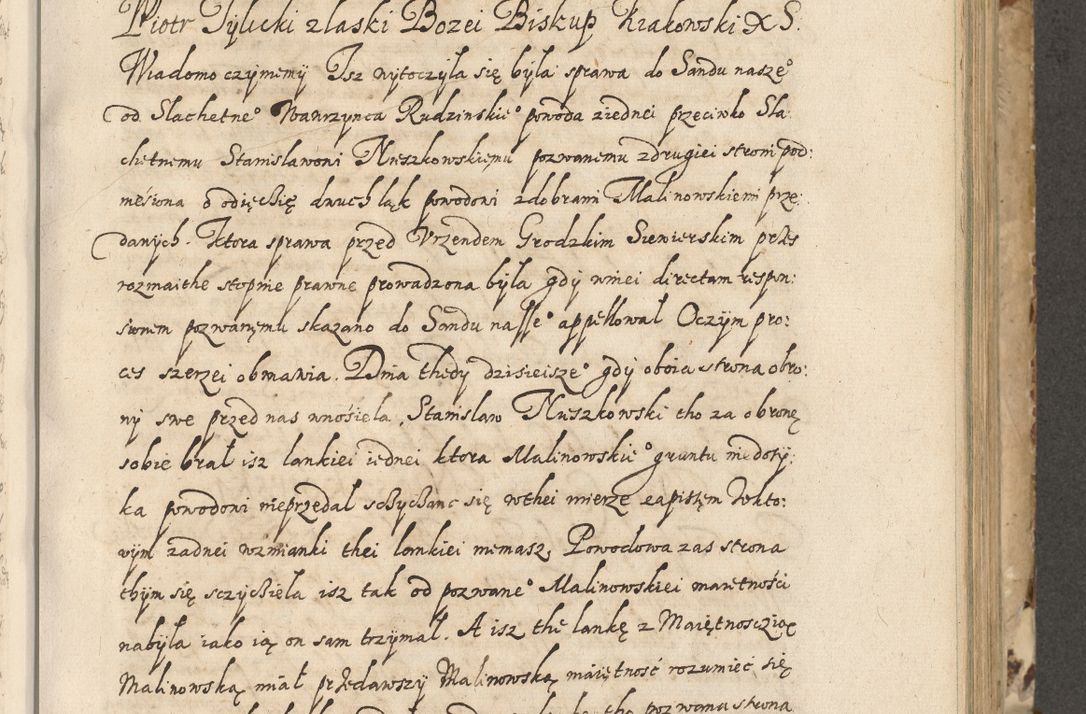 Piotr Tylicki z laski Bozei Biskup Krakowski X S.
Wiadomo czyniemy Isz wytoczyla się była sprawa do Sandu nasze°
od Slachetne° Wawrzynca Rudzinskie° powoda ziednei przeciwko Sla:
chetnemu Stanislawowi Nuszkowskięmu pozwanemu zdrugiei stroni pod:
niesiona o odięcħię dwuch ląk powodowi zdobrami Malinowskiemi prze:
danych. Ktora sprawa przed Vrzendem Grodzkim Siewierskim przes
rozmaithe stopnie prawne prowadzona była gdy wniei directam respon:
siwnem pozwanęmu skazano do Sandu nasse° appellował Oczym pro:
ces szerzei obmawia. Dnia thedy dzisieisze° gdy oboia strona obro:
ny swe przed nas wnosiela, Stanislaw Nuszkowski tho za obronę
sobie brał isz lankiei iednei ktora Malinowskie° gruntu niedoty:
ka powodowi nieprzedal się wthei mierze zapisem wkto:
rym zadnei wzmianki thei lankiei niemasz, Powodowa zas strona
thym się isz tak od pozwane° Malinowskiei maiętności
nabyla iako ią on sam trzymal. A isz the lankę z Maiętnosczią
Malinowską miał przedawszy Malinowską maiętność rozumieć się
tho pozwana strona